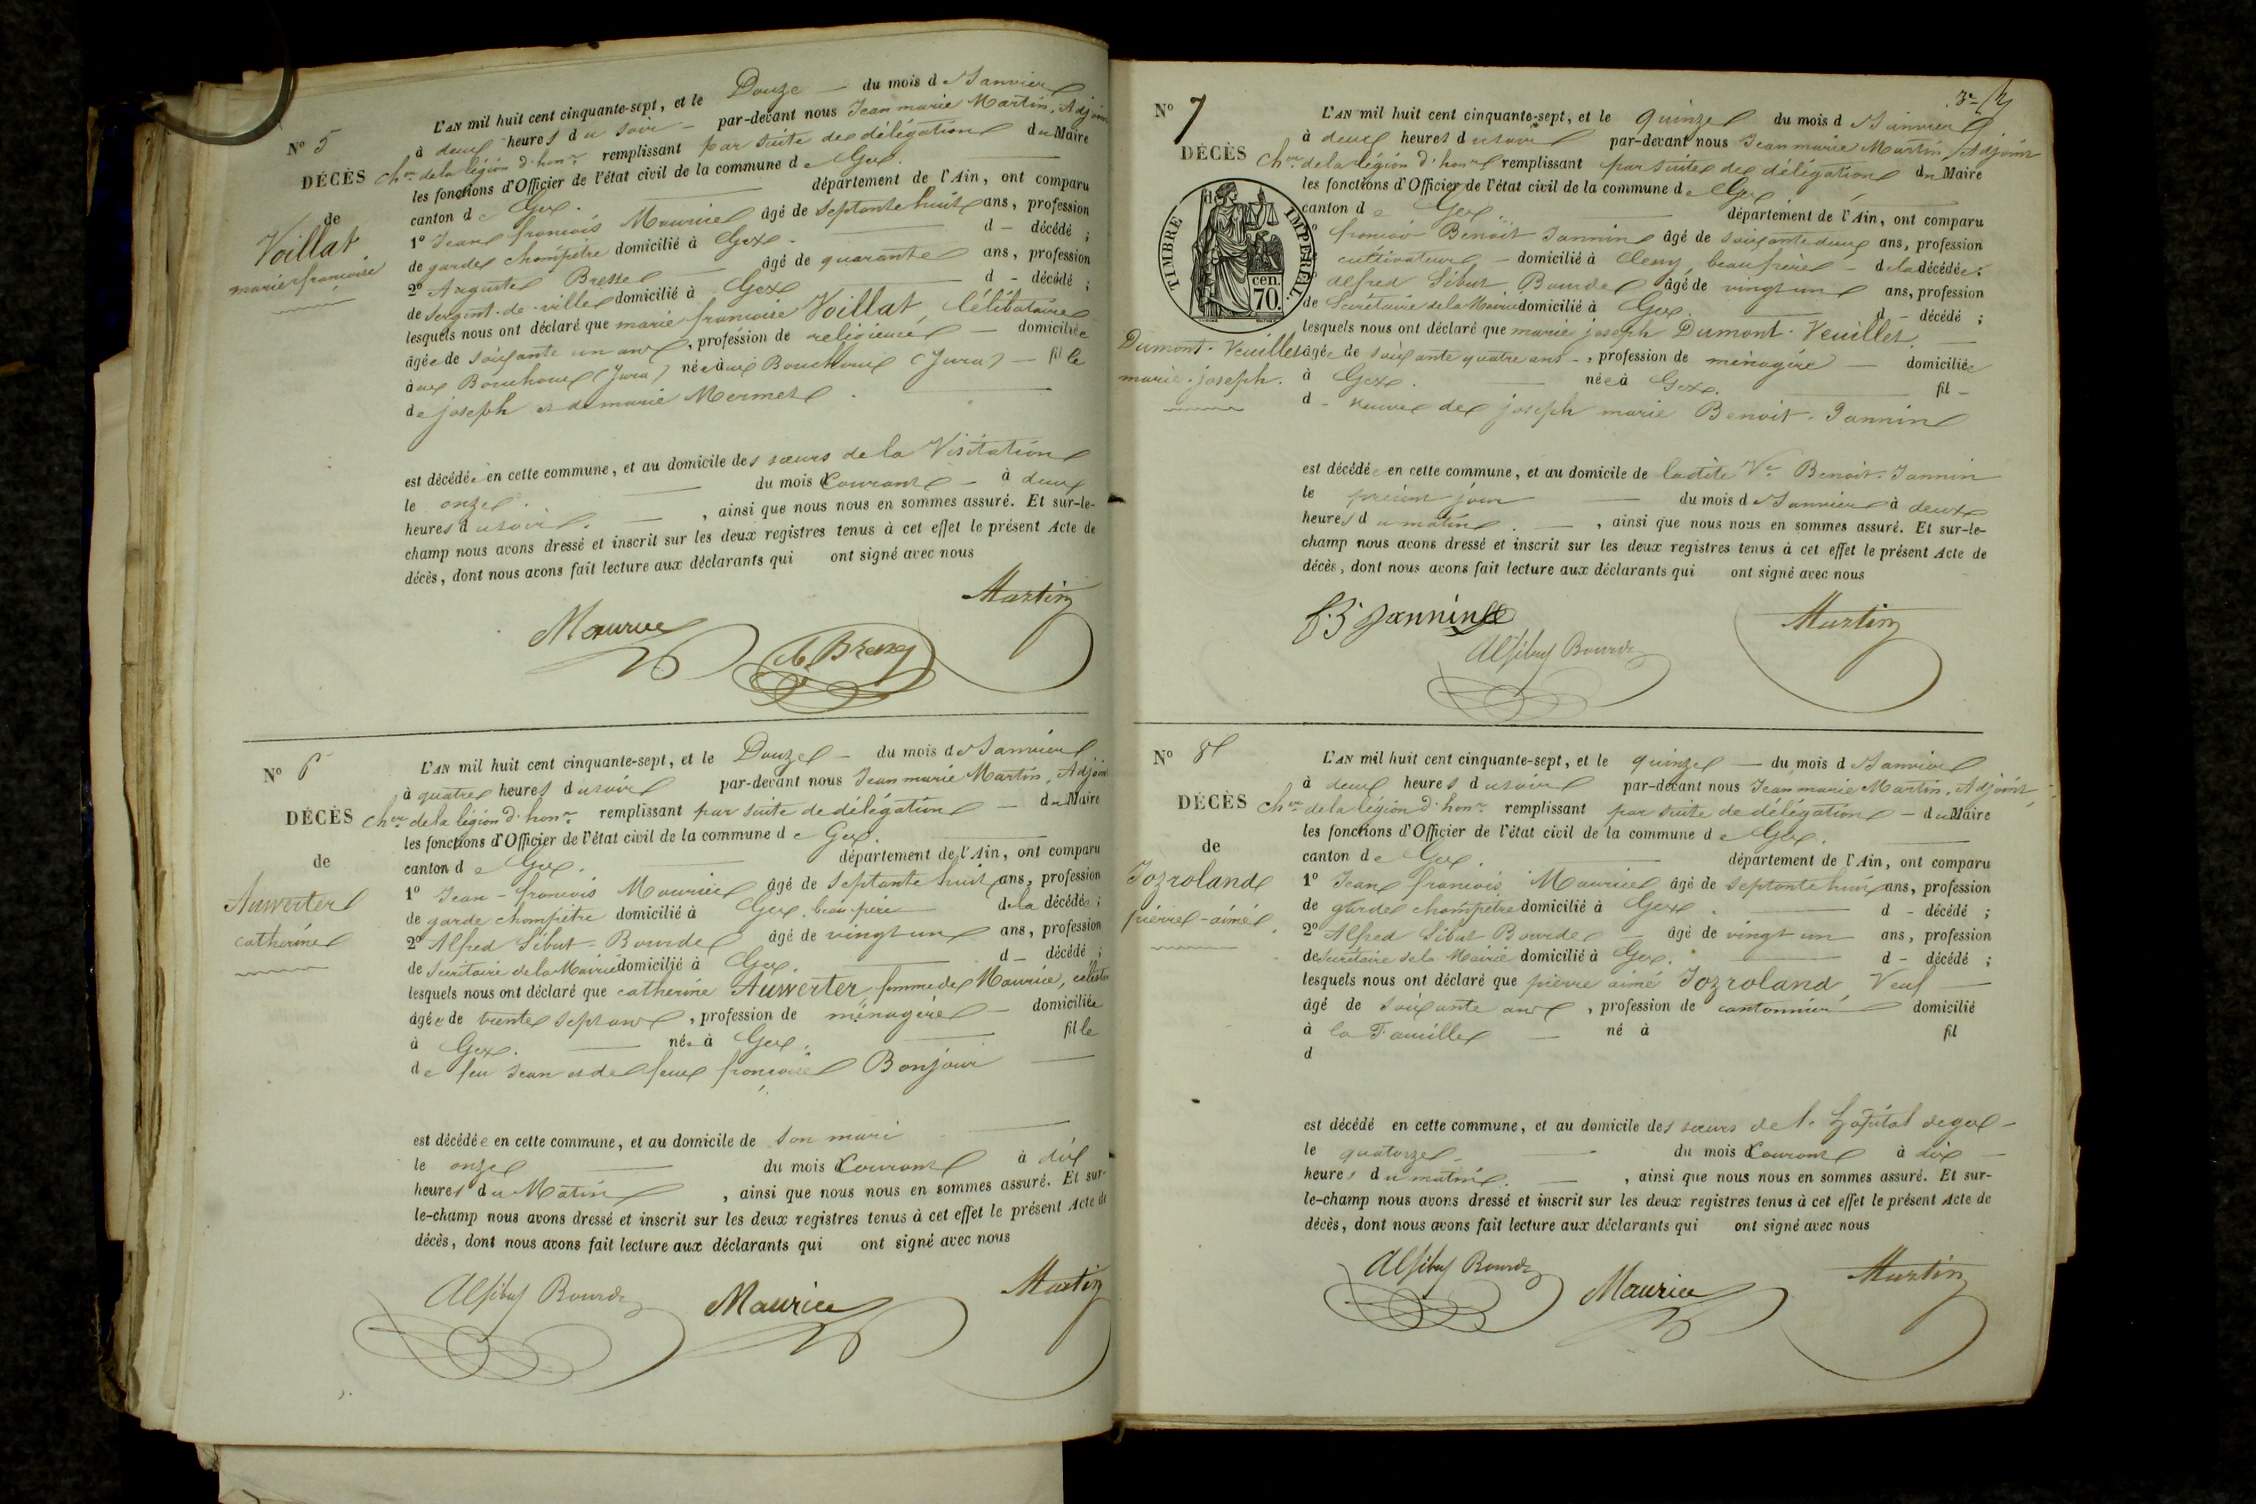 N° 5
DÉCÈS
de
Voillat
marie françoise
L'AN mil huit cent cinquante-sept, et le Douze — du mois de Janvier
à deux heures du soir — par-devant nous Jean marie Martin, Adjoint
Chev. de la légion d'honr. remplissant par suite de délégation du Maire
les fonctions d'Officier de l'état civil de la commune de Gex.
canton de Gex. département de l'Ain, ont comparu
1° Jean françois Maurice âgé de septante huit ans, profession
de garde champêtre domicilié à Gex. d — décédé ;
2° Auguste Bressel âgé de quarante ans, profession
de sergent-de-ville domicilié à Gex d — décédé ;
lesquels nous ont déclaré que marie françoise Voillat, Célibataire
âgée de soixante un ans, profession de religieuse — domiciliée
à aux Bouchoux (Jura) née à aux Bouchoux (Jura) — fille
de joseph et de marie Mermet.
est décédée en cette commune, et au domicile des sœurs de la Visitation
le onze. du mois Courant — à deux
heures du soir. — , ainsi que nous nous en sommes assuré. Et sur-le-
champ nous avons dressé et inscrit sur les deux registres tenus à cet effet le présent Acte de
décès, dont nous avons fait lecture aux déclarants qui ont signé avec nous
Martin
Maurice
N° 6
DÉCÈS
de
Auwerter
catherine
L'AN mil huit cent cinquante-sept, et le Douze — du mois de Janvier
à quatre heures du soir par-devant nous Jean marie Martin, Adjoint
Chev. de la légion d'honr. remplissant par suite de délégation — du Maire
les fonctions d'Officier de l'état civil de la commune de Gex.
canton de Gex. département de l'Ain, ont comparu
1° Jean-françois Maurice âgé de septante huit ans, profession
de garde champêtre domicilié à Gex, beau père — de la décédée ;
2° Alfred Sibut-Bourde âgé de vingt un ans, profession
de secrétaire de la Mairie domicilié à Gex. d — décédé ;
lesquels nous ont déclaré que catherine Auwerter, femme de Maurice,
âgée de trente sept ans, profession de ménagère — domiciliée
à Gex. — née à Gex. fille
de feu Jean et de feue françoise Bonjour —
est décédée en cette commune, et au domicile de son mari
le onze du mois Courant à dix
heures du Matin , ainsi que nous nous en sommes assuré. Et sur-
le-champ nous avons dressé et inscrit sur les deux registres tenus à cet effet le présent Acte de
décès, dont nous avons fait lecture aux déclarants qui ont signé avec nous
Alf Sibut Bourde Maurice Martin
N° 7
DÉCÈS
de
TIMBRE IMPÉRIAL.
cen.
70.
Dumont-Veuillet
marie-joseph.
L'AN mil huit cent cinquante-sept, et le Quinze du mois de Janvier
à deux heures du soir par-devant nous Jean marie Martin, Adjoint
Chev. de la légion d'honr. remplissant par suite de délégation du Maire
les fonctions d'Officier de l'état civil de la commune de Gex
canton de Gex. département de l'Ain, ont comparu
françois Benoit Jannin âgé de soixante deux ans, profession
cultivateur — domicilié à Cessy, beau frère — de la décédée ;
alfred Sibut Bourde âgé de vingt un ans, profession
de Secrétaire de la Mairie domicilié à Gex. d — décédé ;
lesquels nous ont déclaré que marie joseph Dumont-Veuillet.
âgée de soixante quatre ans —, profession de ménagère — domiciliée
à Gex. née à Gex. fil —
d — veuve de joseph marie Benoit-Jannin
est décédée en cette commune, et au domicile de ladite Ve. Benoit-Jannin
le présent jour du mois de Janvier à deux
heures du matin. — , ainsi que nous nous en sommes assuré. Et sur-le-
champ nous avons dressé et inscrit sur les deux registres tenus à cet effet le présent Acte de
décès, dont nous avons fait lecture aux déclarants qui ont signé avec nous
f. B. Jannin Martin
Alf Sibut Bourde
N° 8
DÉCÈS
de
Jozroland
pierre-aimé
L'AN mil huit cent cinquante-sept, et le quinze — du mois de Janvier
à deux heures du soir par-devant nous Jean marie Martin, Adjoint,
Chev. de la légion d'honr. remplissant par suite de délégation — du Maire
les fonctions d'Officier de l'état civil de la commune de Gex.
canton de Gex. département de l'Ain, ont comparu
1° Jean françois Maurice âgé de septante huit ans, profession
de garde champêtre domicilié à Gex. d — décédé ;
2° Alfred Sibut Bourde — âgé de vingt un ans, profession
de Secrétaire de la Mairie domicilié à Gex. d — décédé ;
lesquels nous ont déclaré que pierre aimé Jozroland, Veuf —
âgé de soixante ans, profession de cantonnier domicilié
à la Faucille — né à fil
d
est décédé en cette commune, et au domicile des sœurs de l'hopital de gex —
le quatorze. du mois Courant à dix —
heures du matin. — , ainsi que nous nous en sommes assuré. Et sur-
le-champ nous avons dressé et inscrit sur les deux registres tenus à cet effet le présent Acte de
décès, dont nous avons fait lecture aux déclarants qui ont signé avec nous
Alf Sibut Bourde Maurice Martin